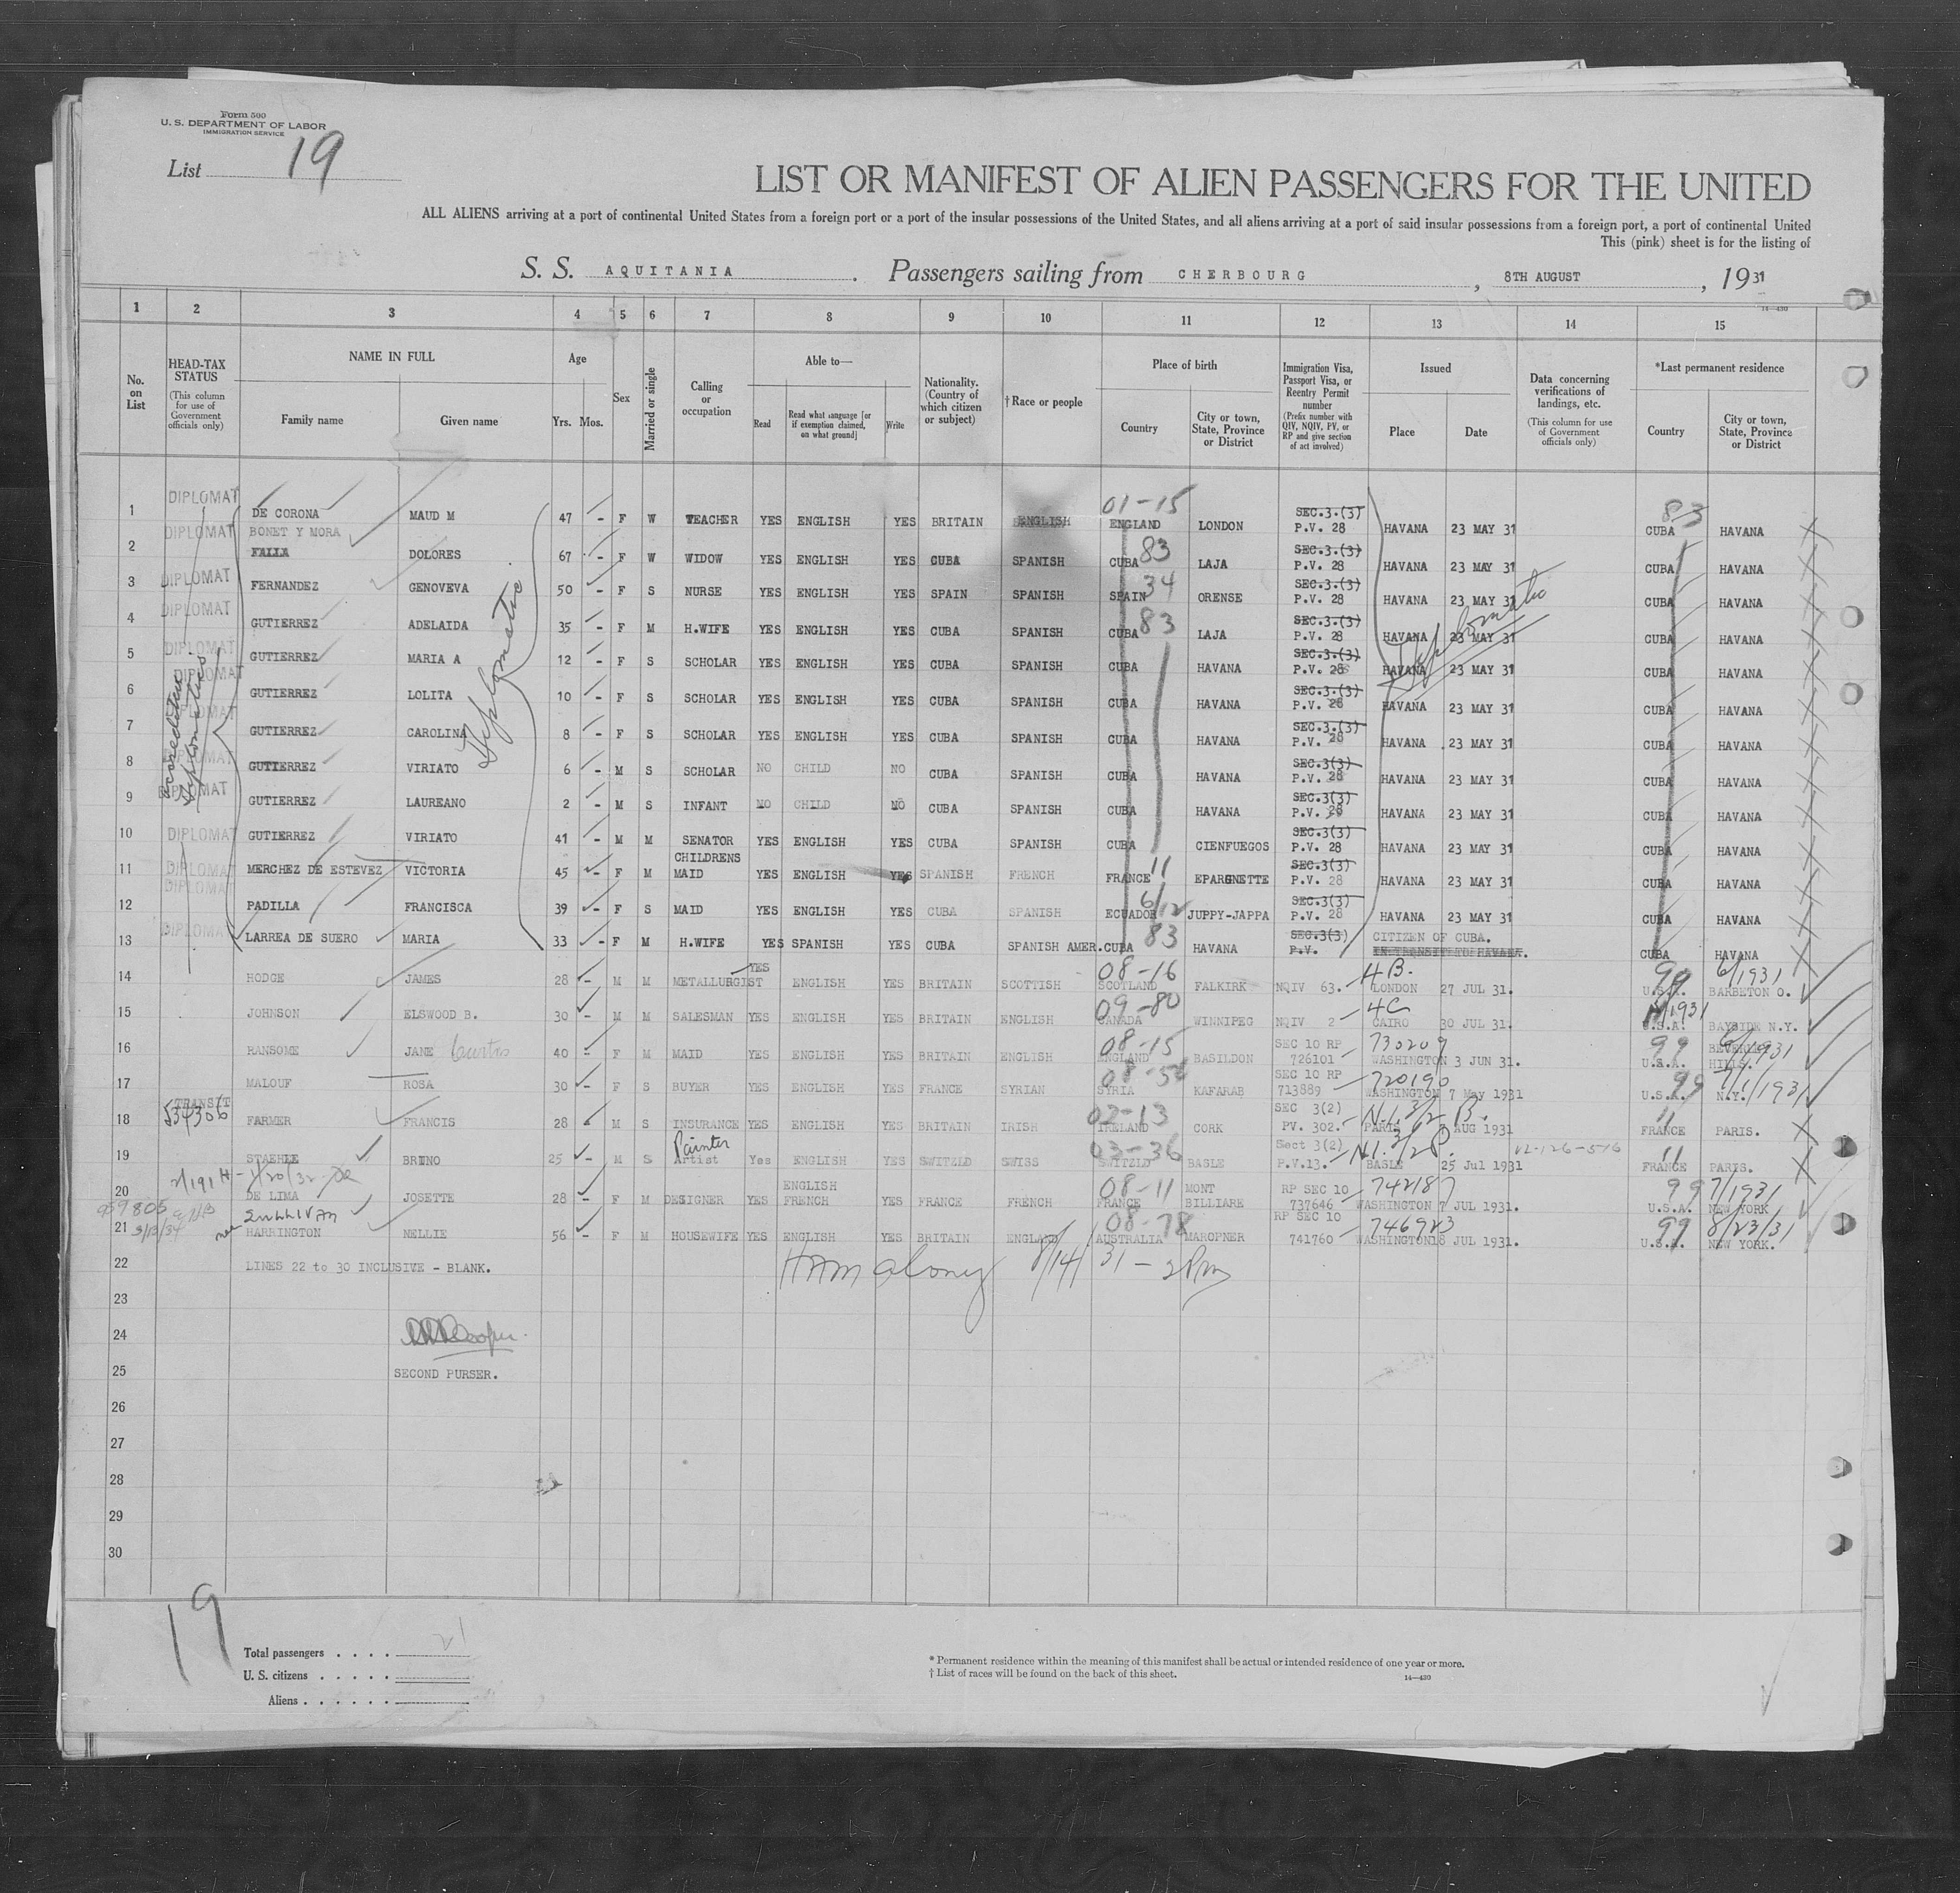 Form 500
U. S. DEPARTMENT OF LABOR
IMMIGRATION SERVICE
List 19
LIST OR MANIFEST OF ALIEN PASSENGERS FOR THE UNITED
ALL ALIENS arriving at a port of continental United States from a foreign port or a port of the insular possessions of the United States, and all aliens arriving at a port of said insular possessions from a foreign port, a port of continental United
This (pink) sheet is for the listing of
S. S. AQUITANIA. Passengers sailing from CHERBOURG, 8TH AUGUST, 1931
14—430
1 2 3 4 5 6 7 8 9 10 11 12 13 14 15
No. on List
HEAD-TAX STATUS (This column for use of Government officials only)
NAME IN FULL
Family name Given name
Age
Yrs. Mos.
Sex
Married or single
Calling or occupation
Able to—
Read Read what language [or if exemption claimed, on what ground] Write
Nationality. (Country of which citizen or subject)
†Race or people
Place of birth
Country City or town, State, Province or District
Immigration Visa, Passport Visa, or Reentry Permit number (Prefix number with QIV, NQIV, PV, or RP and give section of act involved)
Issued
Place Date
Data concerning verifications of landings, etc. (This column for use of Government officials only)
*Last permanent residence
Country City or town, State, Province or District
Accredited Diplomatic
Diplomatic
Diplomatic
1 DIPLOMAT DE CORONA MAUD M 47 - F W TEACHER YES ENGLISH YES BRITAIN ENGLISH 01-15 ENGLAND LONDON SEC.3.(3) P.V. 28 HAVANA 23 MAY 31 83 CUBA HAVANA
2 DIPLOMAT BONET Y MORA FALLA DOLORES 67 - F W WIDOW YES ENGLISH YES CUBA SPANISH CUBA 83 LAJA SEC.3.(3) P.V. 28 HAVANA 23 MAY 31 CUBA HAVANA
3 DIPLOMAT FERNANDEZ GENOVEVA 50 - F S NURSE YES ENGLISH YES SPAIN SPANISH SPAIN 34 ORENSE SEC.3.(3) P.V. 28 HAVANA 23 MAY 31 CUBA HAVANA
4 DIPLOMAT GUTIERREZ ADELAIDA 35 - F M H.WIFE YES ENGLISH YES CUBA SPANISH CUBA 83 LAJA SEC.3.(3) P.V. 28 HAVANA 23 MAY 31 CUBA HAVANA
5 DIPLOMAT GUTIERREZ MARIA A 12 - F S SCHOLAR YES ENGLISH YES CUBA SPANISH CUBA HAVANA SEC.3.(3) P.V. 28 HAVANA 23 MAY 31 CUBA HAVANA
6 DIPLOMAT GUTIERREZ LOLITA 10 - F S SCHOLAR YES ENGLISH YES CUBA SPANISH CUBA HAVANA SEC.3.(3) P.V. 28 HAVANA 23 MAY 31 CUBA HAVANA
7 DIPLOMAT GUTIERREZ CAROLINA 8 - F S SCHOLAR YES ENGLISH YES CUBA SPANISH CUBA HAVANA SEC.3.(3) P.V. 28 HAVANA 23 MAY 31 CUBA HAVANA
8 DIPLOMAT GUTIERREZ VIRIATO 6 - M S SCHOLAR NO CHILD NO CUBA SPANISH CUBA HAVANA SEC.3(3) P.V. 28 HAVANA 23 MAY 31 CUBA HAVANA
9 DIPLOMAT GUTIERREZ LAUREANO 2 - M S INFANT NO CHILD NO CUBA SPANISH CUBA HAVANA SEC.3(3) P.V. 28 HAVANA 23 MAY 31 CUBA HAVANA
10 DIPLOMAT GUTIERREZ VIRIATO 41 - M M SENATOR YES ENGLISH YES CUBA SPANISH CUBA CIENFUEGOS SEC.3(3) P.V. 28 HAVANA 23 MAY 31 CUBA HAVANA
11 DIPLOMAT MERCHEZ DE ESTEVEZ VICTORIA 45 - F M CHILDRENS MAID YES ENGLISH YES SPANISH FRENCH FRANCE 11 EPARGNETTE SEC.3(3) P.V. 28 HAVANA 23 MAY 31 CUBA HAVANA
12 DIPLOMAT PADILLA FRANCISCA 39 - F S MAID YES ENGLISH YES CUBA SPANISH ECUADOR 6/12 JUPPY-JAPPA SEC.3(3) P.V. 28 HAVANA 23 MAY 31 CUBA HAVANA
13 DIPLOMAT LARREA DE SUERO MARIA 33 - F M H.WIFE YES SPANISH YES CUBA SPANISH AMER. CUBA 83 HAVANA SEC.3(3) P.V. CITIZEN OF CUBA. IN TRANSIT TO HAVANA. CUBA HAVANA
14 HODGE JAMES 28 - M M METALLURGIST YES ENGLISH YES BRITAIN SCOTTISH 08-16 SCOTLAND FALKIRK NQIV 63. 4B. LONDON 27 JUL 31. 99 U.S.A. 6/1931 BARBETON O.
15 JOHNSON ELSWOOD B. 30 - M M SALESMAN YES ENGLISH YES BRITAIN ENGLISH 09-80 CANADA WINNIPEG NQIV 2 4C CAIRO 30 JUL 31. U.S.A. 1931 BAYSIDE N.Y.
16 RANSOME JANE Curtis 40 - F M MAID YES ENGLISH YES BRITAIN ENGLISH 08-15 ENGLAND BASILDON SEC 10 RP 726101 730209 WASHINGTON 3 JUN 31. 99 U.S.A. 6/1931 BEVERLY HILLS.
17 MALOUF ROSA 30 - F S BUYER YES ENGLISH YES FRANCE SYRIAN 08-54 SYRIA KAFARAB SEC 10 RP 713889 720190 WASHINGTON 7 May 1931 99 U.S.A. 7/1/1931 N.Y.
18 TRANSIT 534306 FARMER FRANCIS 28 - M S INSURANCE YES ENGLISH YES BRITAIN IRISH 02-13 IRELAND CORK SEC 3(2) PV. 302. N.I. 3/2 B. PARIS AUG 1931 11 FRANCE PARIS.
19 STAEHLE BRUNO 25 - M S Painter Artist Yes ENGLISH YES SWITZLD SWISS 03-36 SWITZLD BASLE Sect 3(2) P.V.13. N.I. 3/2 P. BASLE 25 Jul 1931 V2-126-516 11 FRANCE PARIS.
20 2/191 H-1/20/32-DR DE LIMA JOSETTE 28 - F M DESIGNER YES ENGLISH FRENCH YES FRANCE FRENCH 08-11 FRANCE MONT BILLIARE RP SEC 10 737646 742187 WASHINGTON 7 JUL 1931. 99 U.S.A. 7/1931 NEW YORK
21 959805 3/13/34 nee SULLIVAN HARRINGTON NELLIE 56 - F M HOUSEWIFE YES ENGLISH YES BRITAIN ENGLAND 08-78 AUSTRALIA MAROPNER RP SEC 10 741760 746923 WASHINGTON 18 JUL 1931. 99 U.S.A. 8/23/31 NEW YORK.
22 LINES 22 to 30 INCLUSIVE - BLANK. 8/14/31 - 2 Pm
23
24
25 SECOND PURSER.
26
27
28
29
30
19
Total passengers . . . . 21
U. S. citizens . . . . .
Aliens . . . . . .
* Permanent residence within the meaning of this manifest shall be actual or intended residence of one year or more.
† List of races will be found on the back of this sheet.
14—430